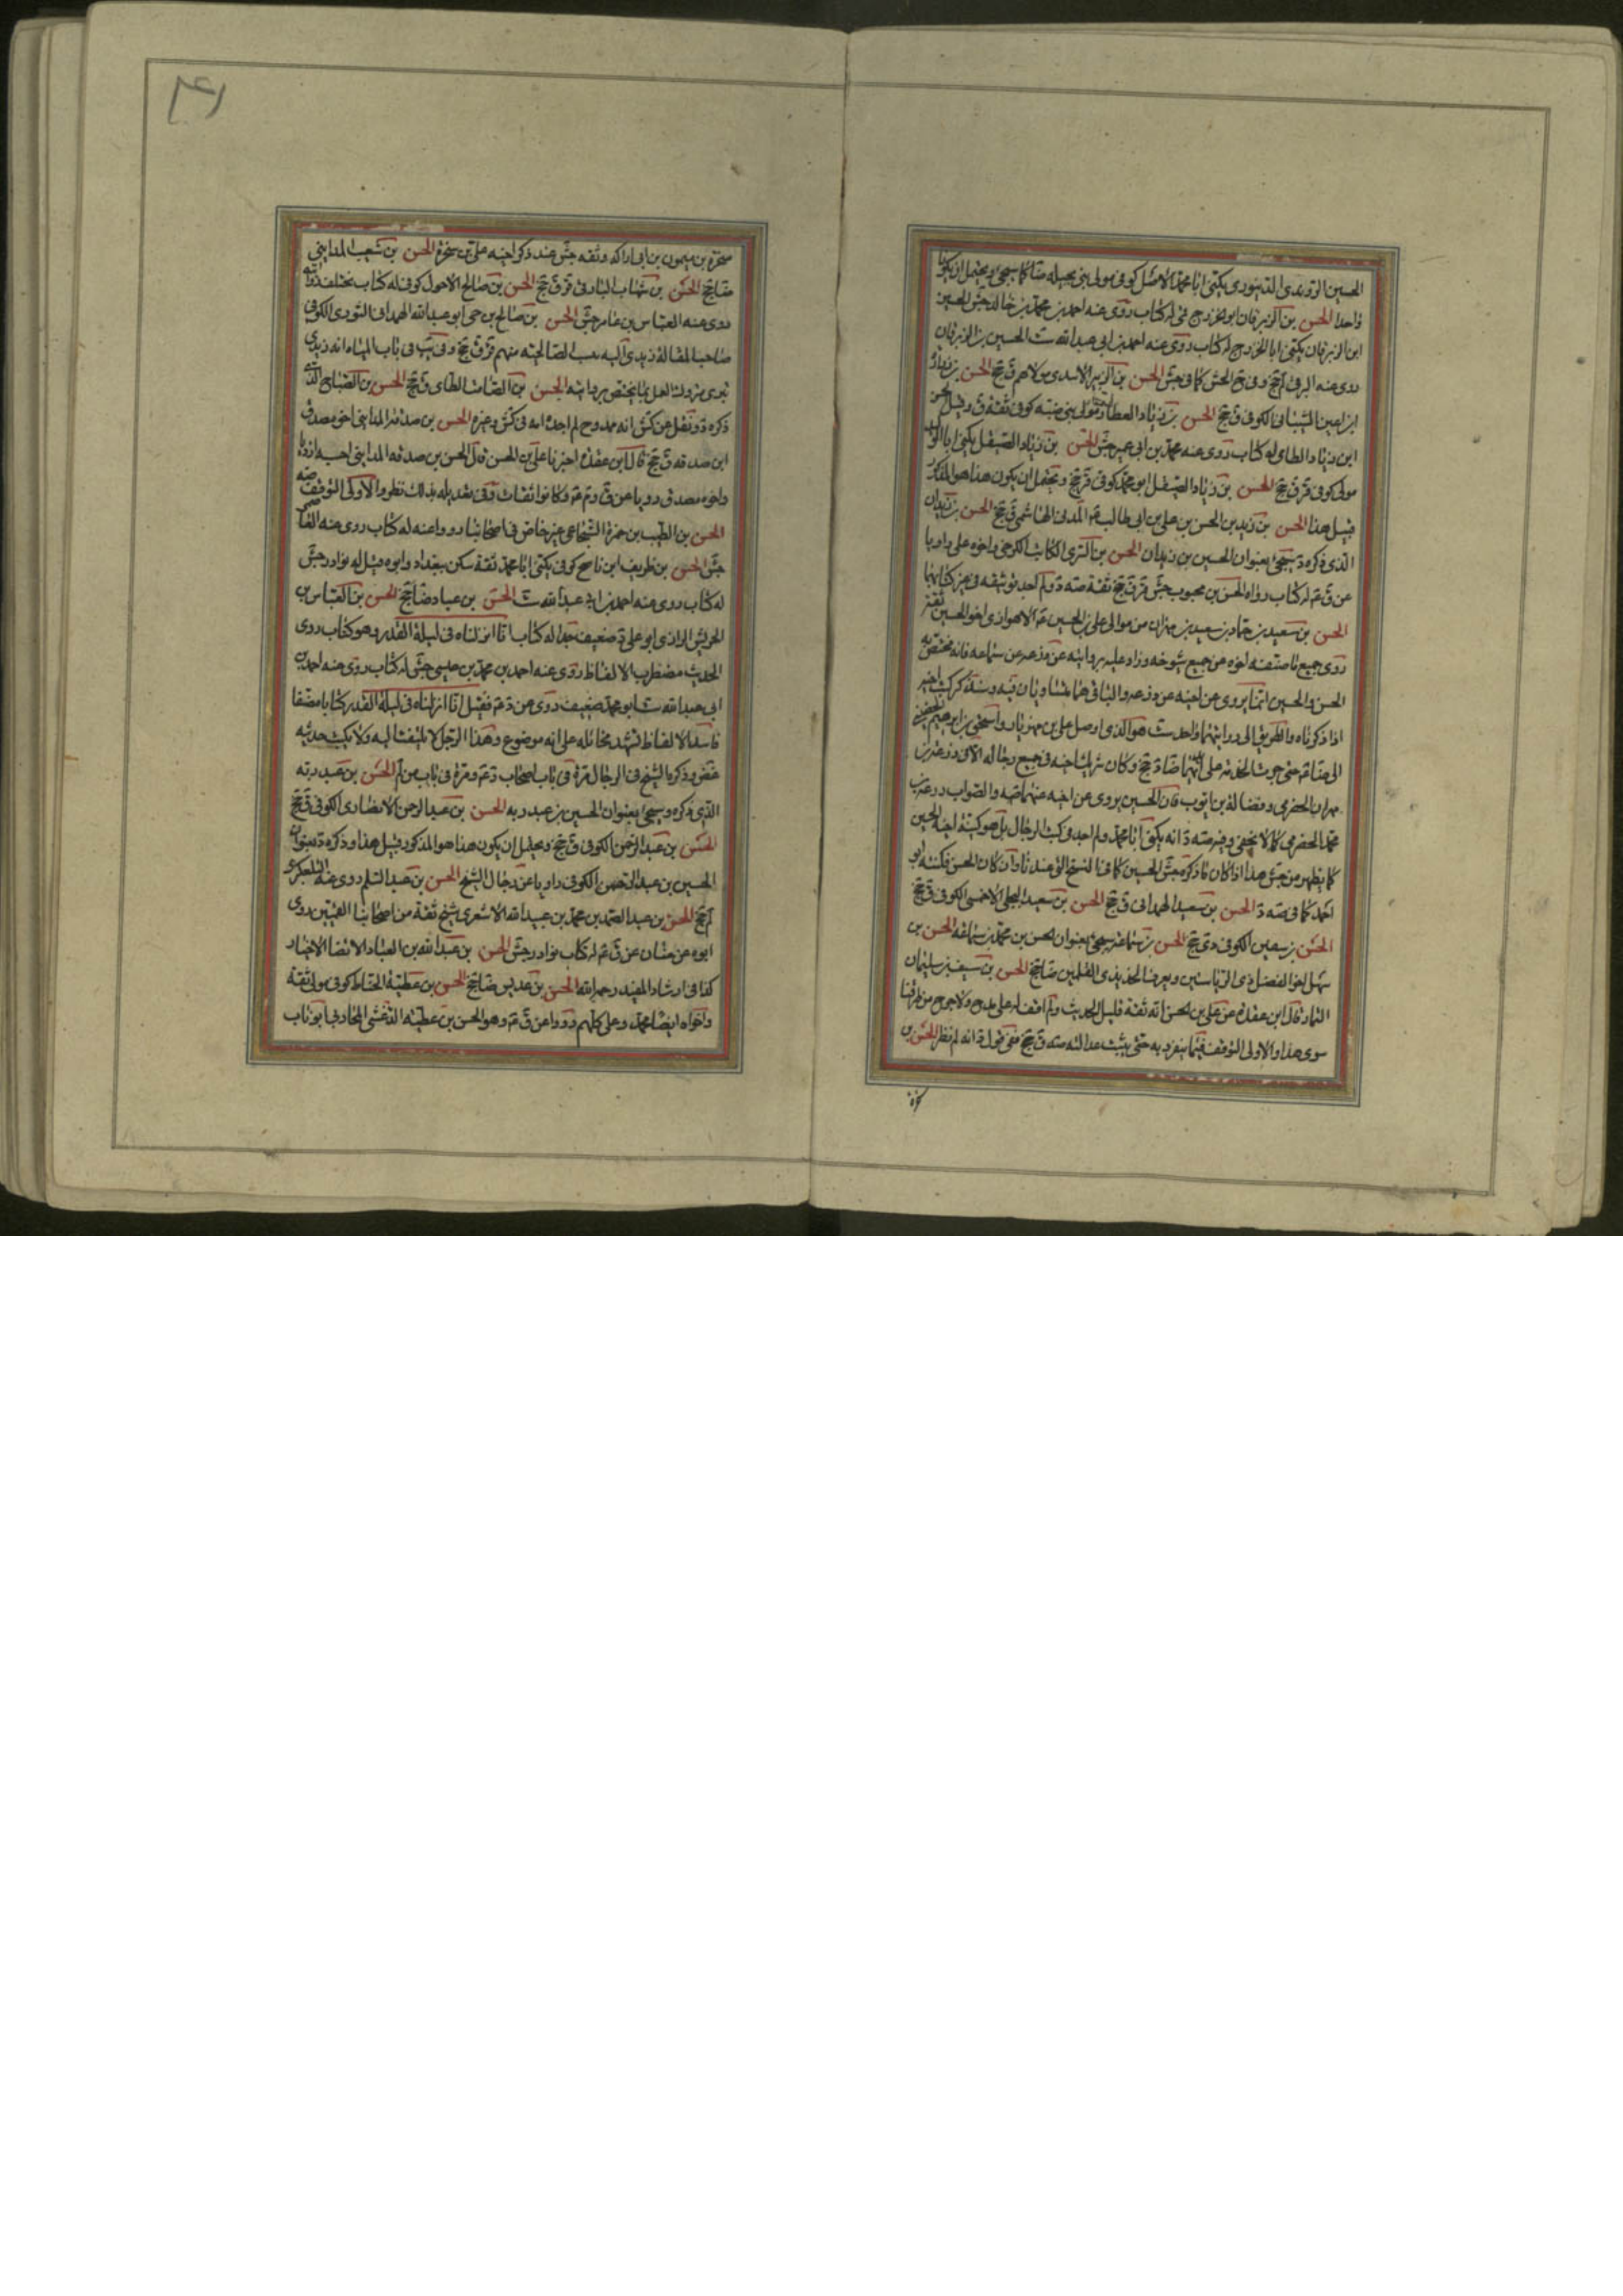 الحسين الزوندي الدينوري يكنى ابا محمد الاصل كوفي مولى بني بجيله ضا كما سيجئ ويحتمل ان يكونا
واحدا الحسن بن الزبرقان ابو الخزرج قمي له كتاب روى عنه احمد بن محمد بن خالد جش الحسين
ابن الزبرقان يكنى ابا الخزرج له كتاب روى عنه احمد بن ابي عبد الله ست الحسين بن الزبرقان
روى عنه البرقي لم جخ وفي جخ الحسن كما في جش الحسن بن الزبير الاسدي مولاهم ق جخ الحسن بن زياد
ابن اعين الشيباني الكوفي ق جخ الحسن بن زياد العطار مولى بني ضبه كوفي ثقة ق وقيل الحسن
ابن زياد الطاي له كتاب روى عنه محمد بن ابي عمير جش الحسن بن زياد الصيقل يكنى ابا الوليد
مولى كوفي قر ق جخ الحسن بن زياد الصيقل ابو محمد كوفي قر جخ ويحتمل ان يكون هذا هو المذكور
قبيل هذا الحسن بن زيد بن الحسن بن علي بن ابي طالب المدني الهاشمي ق جخ الحسن بن زيدان
الذي ذكره د سيجئ بعنوان الحسين بن زيدان الحسن بن السري الكاتب الكرخي واخوه علي رويا
عن ق له كتاب رواه الحسن بن محبوب جش قر ق جخ ثقة صه د ولم اجد توثيقه في غير كتابيهما
الحسن بن سعيد بن حماد بن سعيد بن مهران من موالي علي بن الحسين الاهوازي اخو الحسين ثقة
روى جميع ما صنفه اخوه عن جميع شيوخه وزاد عليه بروايته عن زرعه عن سماعه فانه يختص به
الحسن والحسين انما يروى عن اخيه عن زرعه والباقي هما متساويان فيه وسنذكر كتب اخيه
اذا ذكرناه والطريق الى روايتهما واحد ست هو الذي اوصل علي بن مهزيار واسحق بن ابرهيم الحضيني
الى ضا حتى جرت الخدمة على ايديهما ضا د جخ وكان شريك اخيه في جميع رجاله الا في زرعة بن
مهران الحضرمي وفضالة بن ايوب فان الحسين يروى عن اخيه عنهما صه والصواب زرعة بن
محمد الحضرمي كما لا يخفى وفي صه د انه يكنى ابا محمد ولم اجد في كتب الرجال بل هو كنية اخيه الحسين
كما يظهر من جش هذا اذا كان ما ذكره جش الحسين كما في النسخ التي عندنا وان كان الحسن فكنيته ابو
احمد كما في صه د الحسن بن سعيد الهمداني ق جخ الحسن بن سعيد البجلي الاحمسي الكوفي ق جخ
الحسن بن سعيد الكوفي دى جخ الحسن بن سماعة سيجئ بعنوان الحسن بن محمد بن سماعة الحسن بن
سهل اخو الفضل ذي الرياستين ويعرف الحسن بذي القلمين ضا جخ الحسن بن سيف بن سليمان
التمار قال ابن عقده عن علي بن الحسن انه ثقة قليل الحديث ولم اقف له على مدح ولا جرح من طرقنا
سوى هذا والاولى التوقف فيما ينفرد به حتى يثبت عدالته صه ق جخ ففي قول د انه لم نظر الحسن بن
٤١
سخرة بن ميمون بن ابي اراكه وثقه جش عند ذكر اخيه علي بن شجرة الحسن بن شعيب المدايني
ضا جخ الحسن بن شهاب البارقي قر ق جخ الحسن بن صالح الاحول كوفي له كتاب يختلف رواته
روى عنه العباس بن عامر جش الحسن بن صالح بن حي ابو عبد الله الهمداني الثوري الكوفي
صاحب المقالة زيدي اليه ينسب الصالحيه منهم قر ق جخ وفي يب في باب المياه انه زيدي
بتري متروك العمل بما يختص بروايته الحسن بن الصامت الطاي ق جخ الحسن بن الصباح الذي
ذكره د ونقل عن كش انه ممدوح لم اجده في كش وغيره الحسن بن صدقه المدايني اخو مصدق
ابن صدقه ق جخ قال ابن عقده اخبرنا علي بن الحسن قال الحسن بن صدقه المدايني احسبه ازديا
واخوه مصدق رويا عن ق وكانوا ثقات وفي تعديله بذلك نظر والاولى التوقف صه
الحسن بن الطيب بن حمزة الشجاعي غير خاص في اصحابنا رووا عنه له كتاب روى عنه القاسم
جش الحسن بن ظريف ابن ناصح كوفي يكنى ابا محمد ثقة سكن ببغداد وابوه قبل له نوادر جش
له كتاب روى عنه احمد بن ابي عبد الله ست الحسن بن عباد ضا جخ الحسن بن العباس بن
الحريش الرازي ابو علي ضعيف جدا له كتاب انا انزلناه في ليلة القدر وهو كتاب روى
الحديث مضطرب الالفاظ روى عنه احمد بن محمد بن عيسى جش له كتاب روى عنه احمد بن
ابي عبد الله ست ابو محمد ضعيف روى عن د فضل انا انزلناه في ليلة القدر كتابا مصنفا
فاسد الالفاظ تشهد مخائله على انه موضوع وهذا الرجل لا يلتفت اليه ولا يكتب حديثه
غض وذكره الشيخ في الرجال مرة في باب اصحاب د ومرة في باب من لم الحسن بن عبد ربه
الذي ذكره وسيجئ بعنوان الحسين بن عبد ربه الحسن بن عبد الرحمن الانصاري الكوفي ق جخ
الحسن بن عبد الرحمن الكوفي ق جخ ويحتمل ان يكون هذا هو المذكور قبيل هذا وذكره د بعنوان
الحسين بن عبد الرحمن الكوفي راويا عن رجال الشيخ الحسن بن عبد السلم روى عنه التلعكبري
لم جخ الحسن بن عبد الصمد بن محمد بن عبيد الله الاشعري شيخ ثقة من اصحابنا القميين روى
ابوه عن حنان عن ق له كتاب نوادر جش الحسن بن عبد الله بن العباد الاتقيا الاخيار
كذا في ارشاد المفيد رحمه الله الحسن بن عديس ضا جخ الحسن بن عطية الحناط كوفي مولى ثقة
واخواه ايضا محمد وعلى كلهم رووا عن ق وهو الحسن بن عطية الدغشي المحاربي ابو ناب